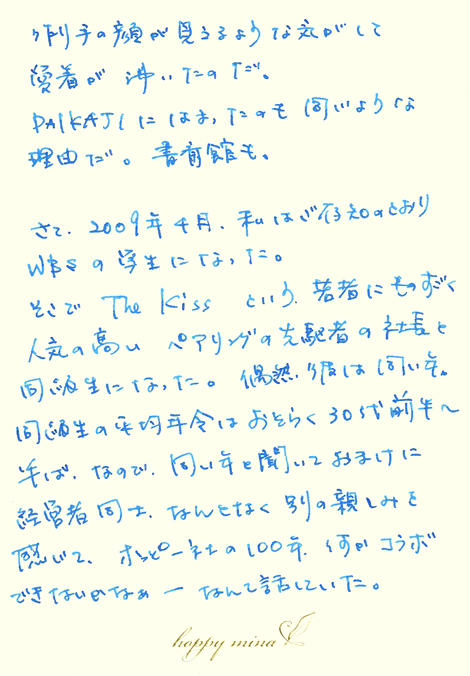 作り手の顔が見えるような気がして
愛着が沸いたのだ。
PAIKAJIにはまったのも同じような
理由だ。書斎館も。
さて、2009年4月、私はご存知のとおり
WBSの学生になった。
そこで The Kiss という、若者にものすごく
人気の高い ペアリングの先駆者の社長と
同級生になった。偶然、彼は同い年。
同級生の平均年令はおそらく30代前半〜
半ば。なので、同い年と聞いておまけに
経営者同士、なんとなく別の親しみを
感じて、ホッピー社の100年、何かコラボ
できないかなぁー なんて話していた。
hoppy mina